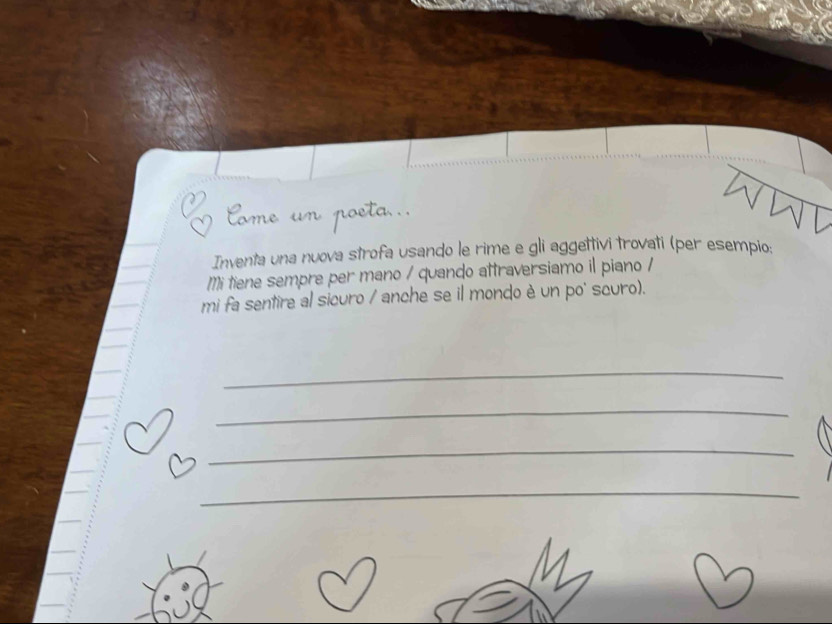 Come un poeta...
Inventa una nuova strofa usando le rime e gli aggettivi trovati (per esempio:
Mi tiene sempre per mano / quando attraversiamo il piano /
mi fa sentire al sicuro / anche se il mondo è un po' scuro).